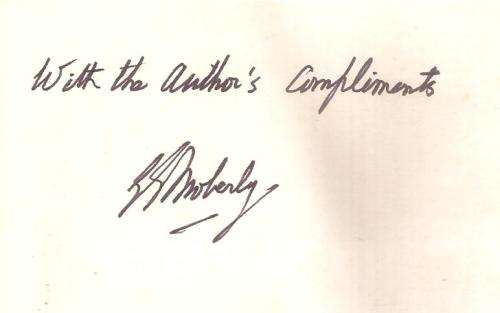 With the Author's Compliments
Moberly